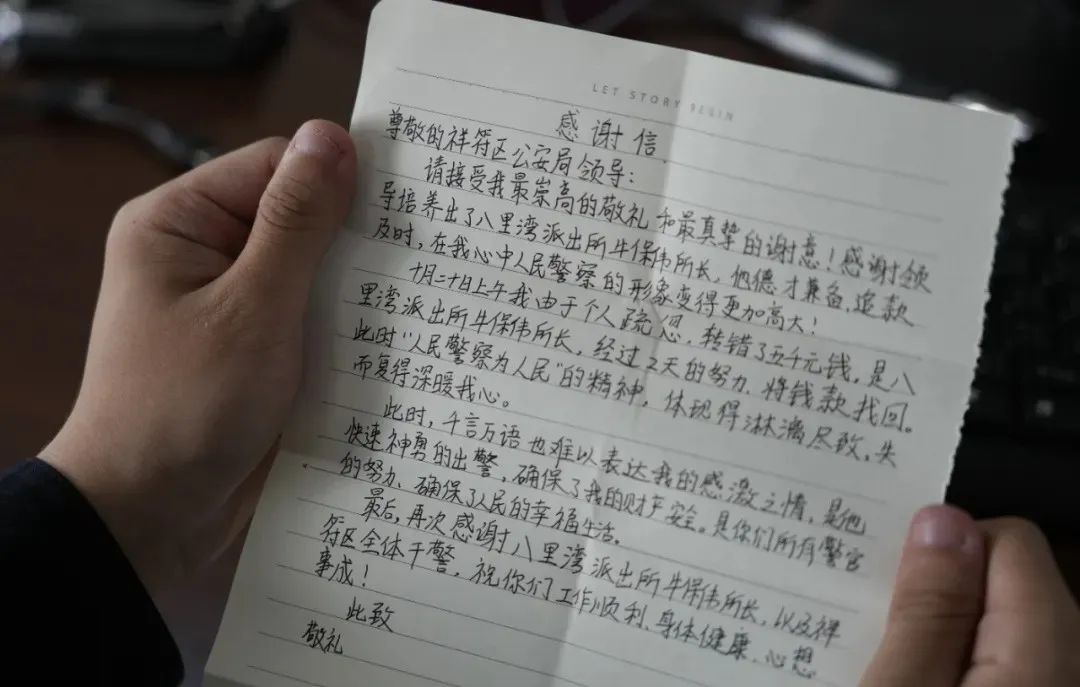 LET STORY BEGIN
感谢信
尊敬的祥符区公安局领导：
请接受我最崇高的敬礼和最真挚的谢意！感谢领
导培养出了八里湾派出所牛保伟所长，他德才兼备，追款
及时，在我心中人民警察的形象变得更加高大！
十月二十日上午我由于个人疏忽，转错了五千元钱，是八
里湾派出所牛保伟所长，经过2天的努力，将钱款找回。
此时“人民警察为人民”的精神，体现得淋漓尽致，失
而复得深暖我心。
此时，千言万语也难以表达我的感激之情，是他
快速神勇的出警，确保了我的财产安全。是你们所有警官
的努力，确保了人民的幸福生活。
最后，再次感谢八里湾派出所牛保伟所长，以及祥
符区全体干警，祝你们工作顺利、身体健康、心想
事成！
此致
敬礼